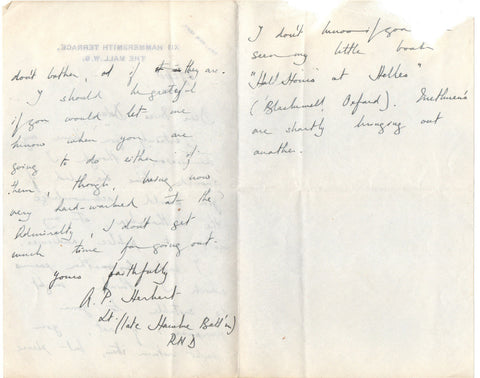 don't bother, or if it is they are.
I should be grateful
if you would let me
know when you are
going to do either of
them, though, being now
very hard-worked at the
Admiralty, I don't get
much time for going out.
yours faithfully
A. P. Herbert
Lt. (late Hawke Batt'n)
RND
I don't know if you
seen my little book
"Half Hours at Helles"
(Blackwell, Oxford). Methuen's
are shortly bringing out
another.
XII HAMMERSMITH TERRACE,
THE MALL, W.6.